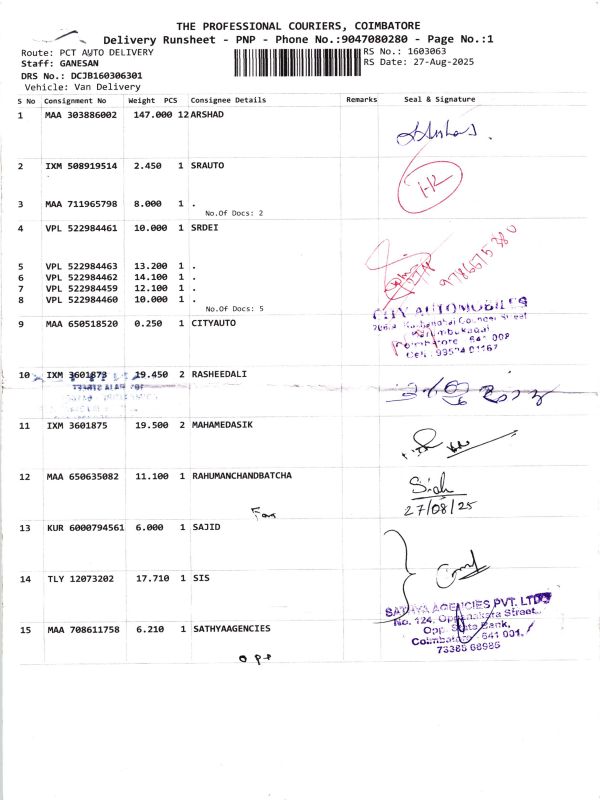 THE PROFESSIONAL COURIERS, COIMBATORE
Delivery Runsheet - PNP - Phone No.:9047080280 - Page No.:1
Route: PCT AUTO DELIVERY
RS No.: 1603063
Staff: GANESAN
RS Date: 27-Aug-2025
DRS No.: DCJB160306301
Vehicle: Van Delivery
S No Consignment No Weight PCS Consignee Details Remarks Seal & Signature
1 MAA 303886002 147.000 12 ARSHAD
2 IXM 508919514 2.450 1 SRAUTO
3 MAA 711965798 8.000 1 .
No.Of Docs: 2
4 VPL 522984461 10.000 1 SRDEI
5 VPL 522984463 13.200 1 .
6 VPL 522984462 14.100 1 .
7 VPL 522984459 12.100 1 .
8 VPL 522984460 10.000 1 .
No.Of Docs: 5
9 MAA 650518520 0.250 1 CITYAUTO
CITY AUTOMOBILES
10 IXM 3601873 19.450 2 RASHEEDALI
11 IXM 3601875 19.500 2 MAHAMEDASIK
12 MAA 650635082 11.100 1 RAHUMANCHANDBATCHA
27/08/25
13 KUR 6000794561 6.000 1 SAJID
14 TLY 12073202 17.710 1 SIS
SATHYA AGENCIES PVT. LTD
No. 124, Oppanakara Street,
Opp. State Bank,
Coimbatore - 641 001.
73385 68986
15 MAA 708611758 6.210 1 SATHYAAGENCIES